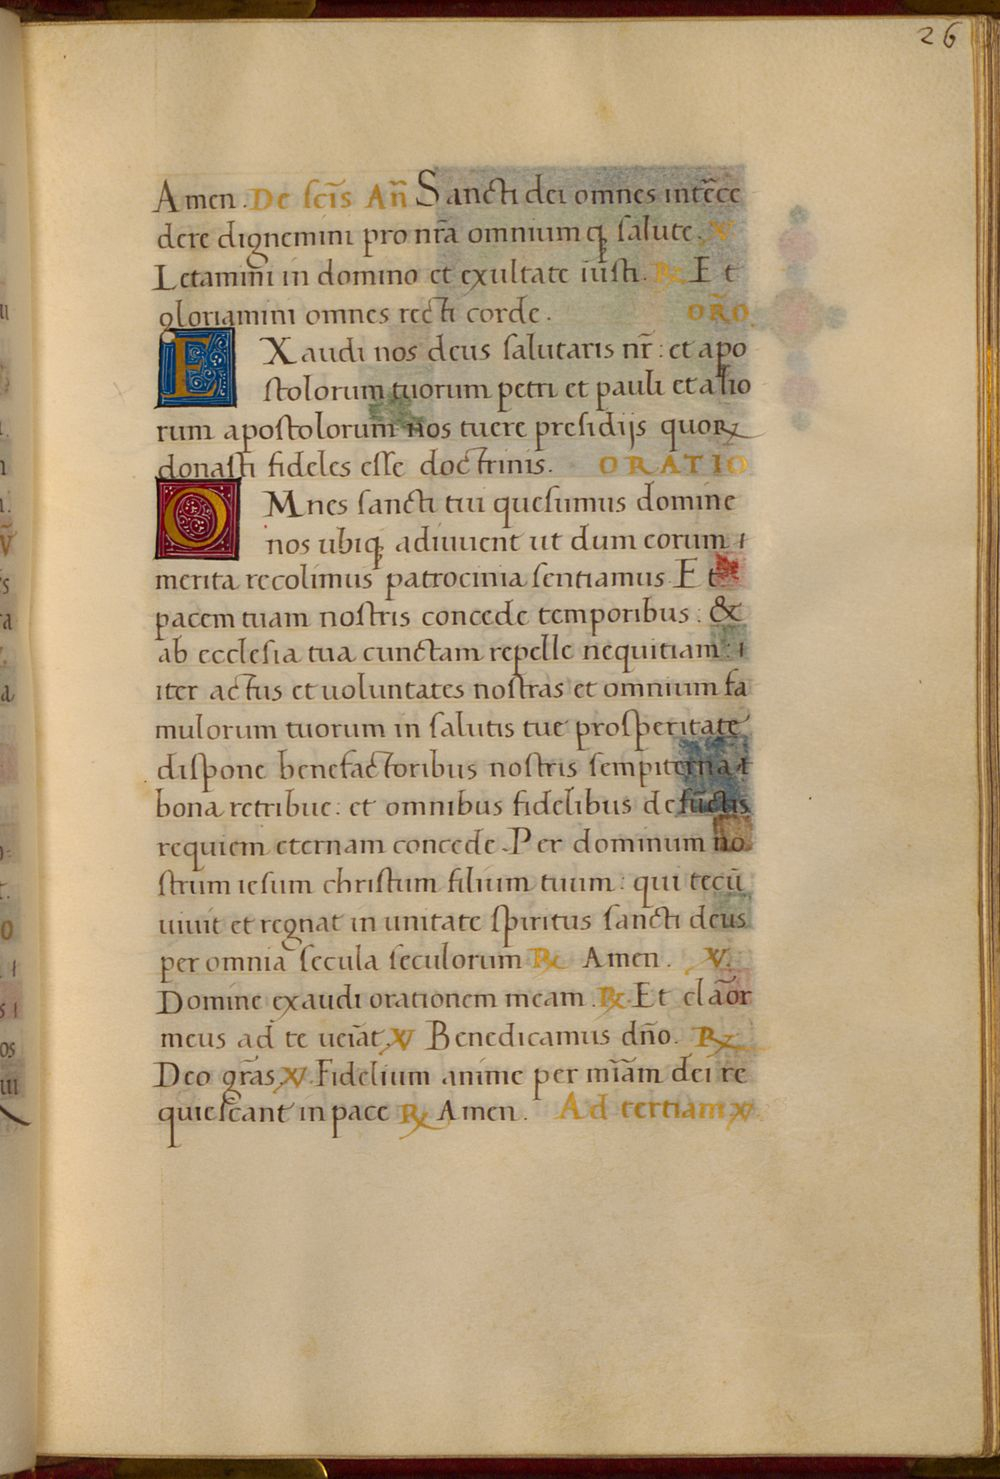 26
Amen. De sc̄is An̄ Sancti dei omnes int̄ce
dere dignemini pro nr̄a omniumq; salute. V
Letamini in domino et exultate iusti. R Et
gloriamini omnes recti corde. OR̄O
EXaudi nos deus salutaris nr̄: et apo
stolorum tuorum petri et pauli et alio
rum apostolorum nos tuere presidijs quoꝝ
donasti fideles esse doctrinis. ORATIO
OMnes sancti tui quesumus domine
nos ubiq; adiuuent ut dum eorum
merita recolimus patrocinia sentiamus. Et
pacem tuam nostris concede temporibus: &
ab ecclesia tua cunctam repelle nequitiam:
iter actus et uoluntates nostras et omnium fa
mulorum tuorum in salutis tue prosperitate
dispone benefactoribus nostris sempiterna
bona retribue: et omnibus fidelibus defūctis
requiem eternam concede. Per dominum no
strum iesum christum filium tuum: qui tecū
uiuit et regnat in unitate spiritus sancti deus
per omnia secula seculorum R Amen. V.
Domine exaudi orationem meam. R. Et clāor
meus ad te ueīat. V Benedicamus dn̄o. R
Deo gr̄as V. Fidelium anime per mīam dei re
quiescant in pace R Amen. Ad tertiam V